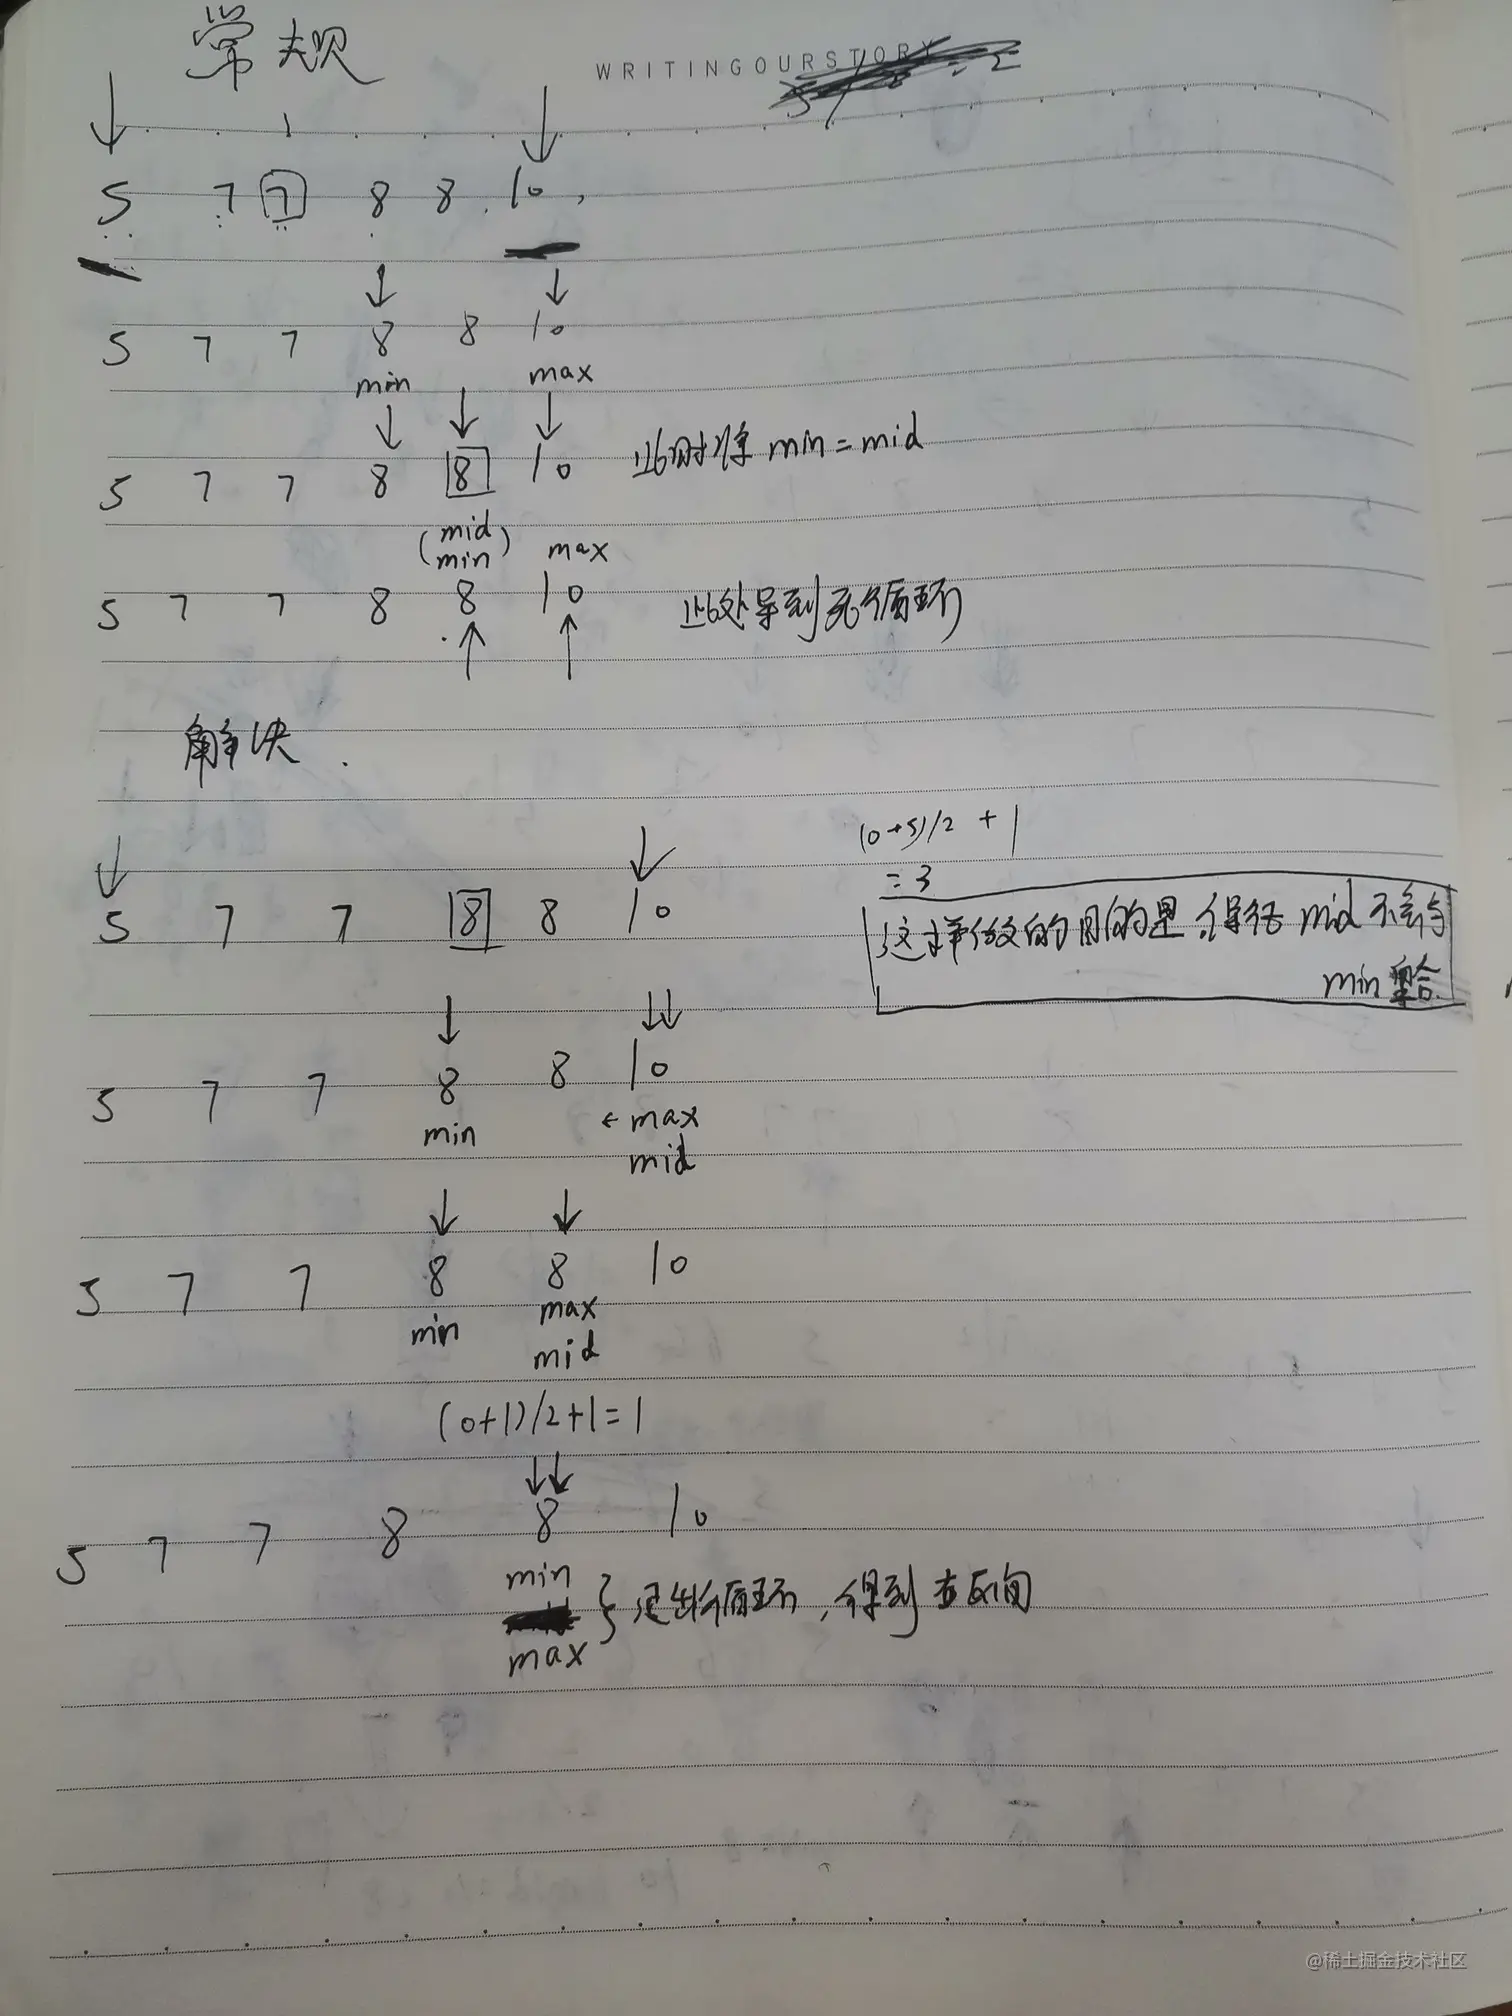 常规
WRITINGOURSTORY
5 7 7 8 8 10,
5 7 7 8 8 10
min max
5 7 7 8 8 10 此时将 min = mid
(mid
min) max
5 7 7 8 8 10 此处导到死循环
解决.
(0+5)/2 + 1
= 3
5 7 7 8 8 10
这样做的目的是,得络 mid 不会与
min 重合
5 7 7 8 8 10
min ← max
mid
5 7 7 8 8 10
min max
mid
(0+1)/2+1=1
5 7 7 8 8 10
min
max } 退出循环,得到
@稀土掘金技术社区